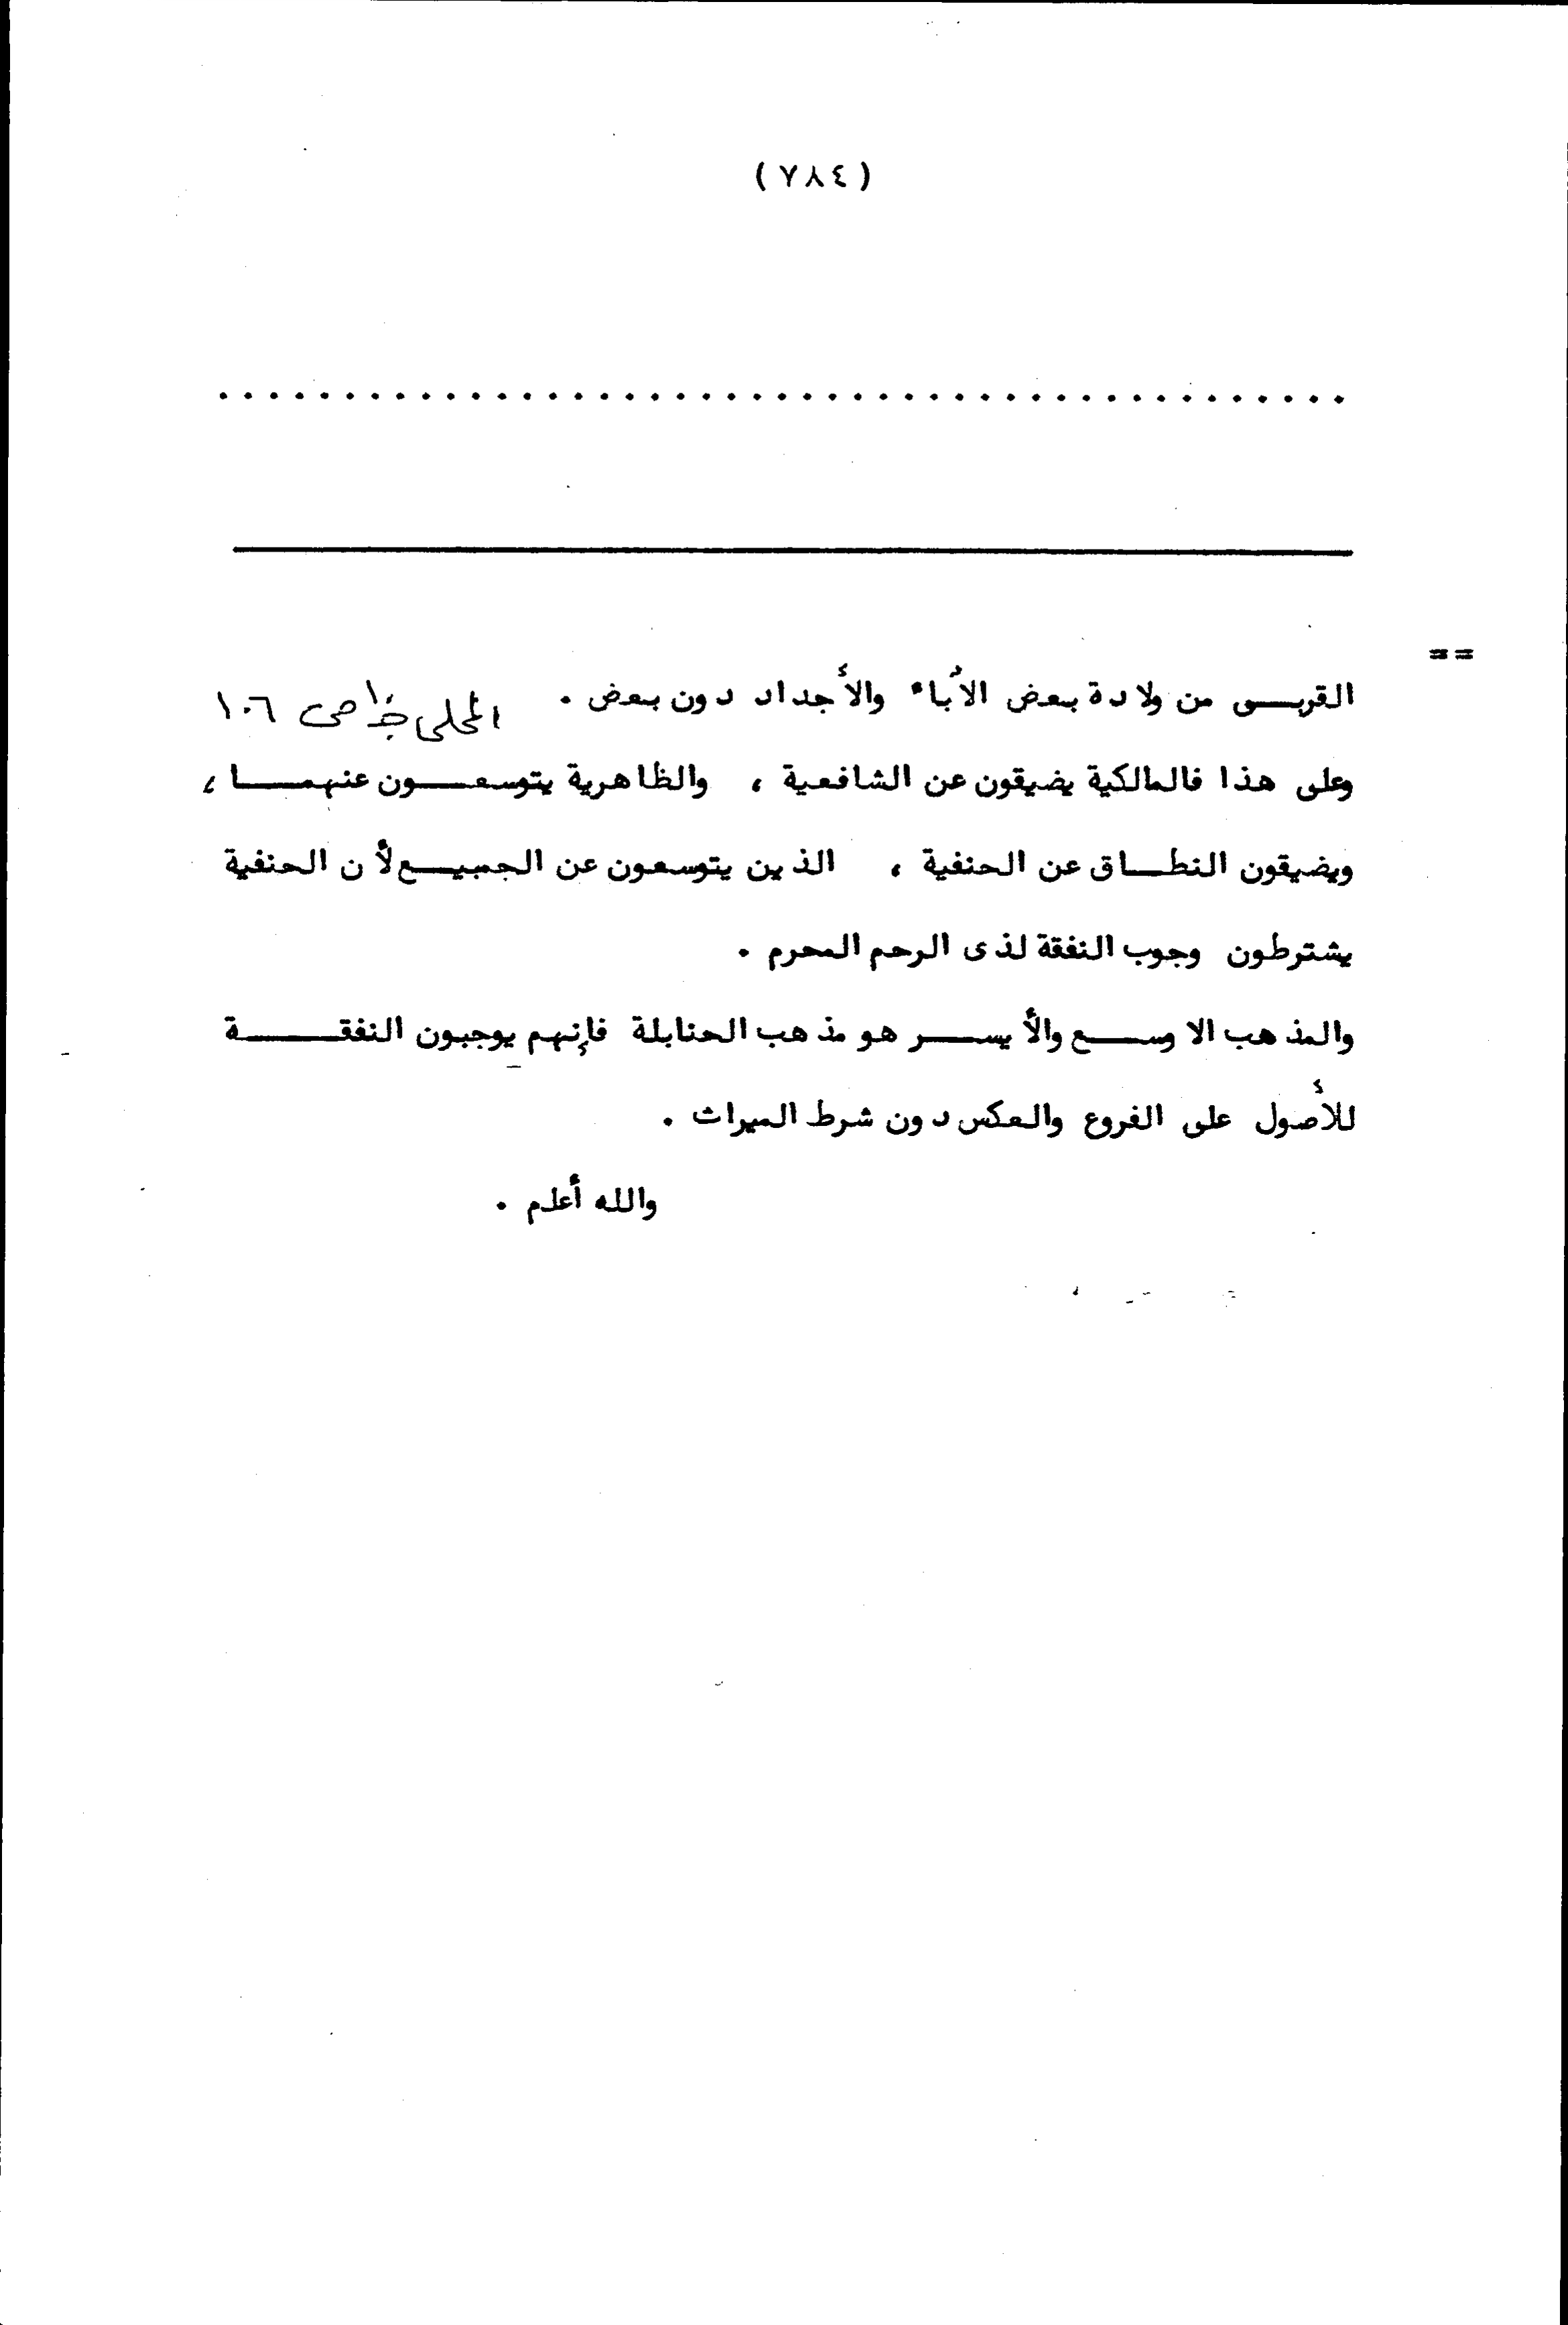 (٧٨٤)
............................................
==
القربى من ولادة بعض الأباء والأجداد دون بعض . المحلى ج١٠ ص ١٠٦
وعلى هذا فالمالكية يضيقون عن الشافعية ، والظاهرية يتوسعون عنهما ،
ويضيقون النطاق عن الحنفية ، الذين يتوسعون عن الجميع لأن الحنفية
يشترطون وجوب النفقة لذى الرحم المحرم .
والمذهب الاوسع والأيسر هو مذهب الحنابلة فإنهم يوجبون النفقة
للأصول على الفروع والعكس دون شرط الميراث .
والله أعلم .